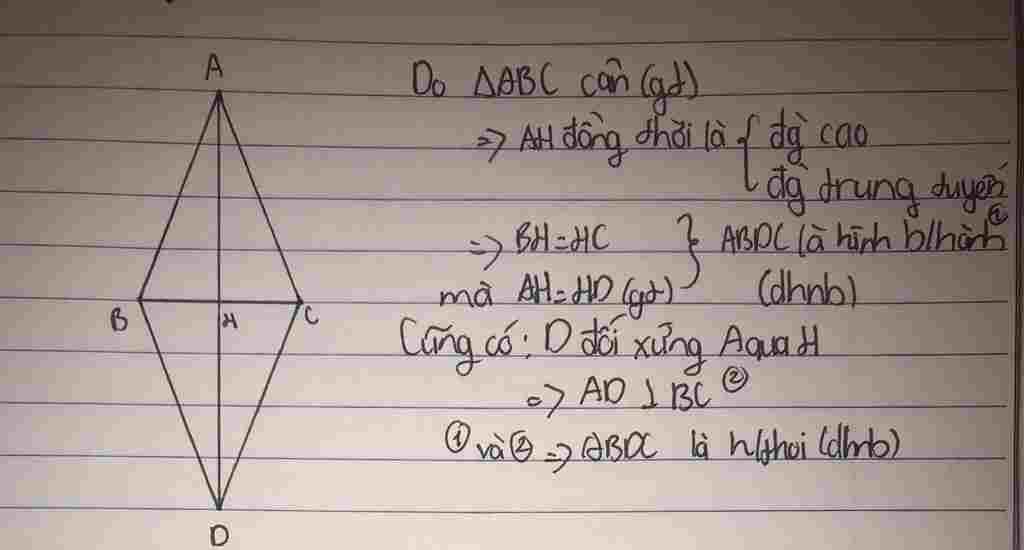 A
Do ΔABC cân (gt)
=> AH đồng thời là { đg cao
đg trung tuyến
=> BH = HC } ABDC là hình b/hành ①
mà AH = HD (gt) (dhnb)
B H C
Cũng có: D đối xứng A qua H
=> AD ⊥ BC ②
① và ② => ABDC là h/thoi (dhnb)
D